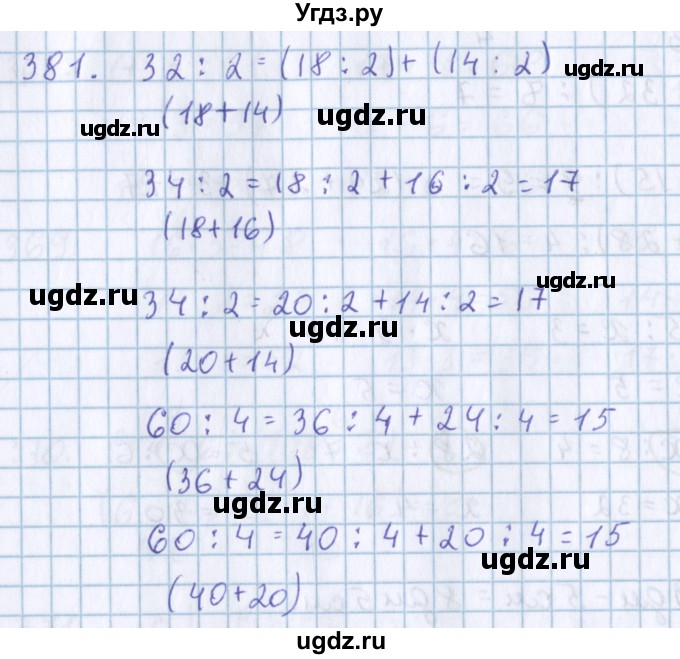 Угдз.ру
381. 32 : 2 = (18 : 2) + (14 : 2)
ugdz.ru
(18+14)
ugdz.ru
ugdz.ru
34 : 2 = 18 : 2 + 16 : 2 = 17
(18+16)
ugdz.ru
ugdz.ru
34 : 2 = 20 : 2 + 14 : 2 = 17
ugdz.ru
(20+14)
60 : 4 = 36 : 4 + 24 : 4 = 15
(36+24)
ugdz.ru
60 : 4 = 40 : 4 + 20 : 4 = 15
ugdz.ru
(40+20)
ugdz.ru